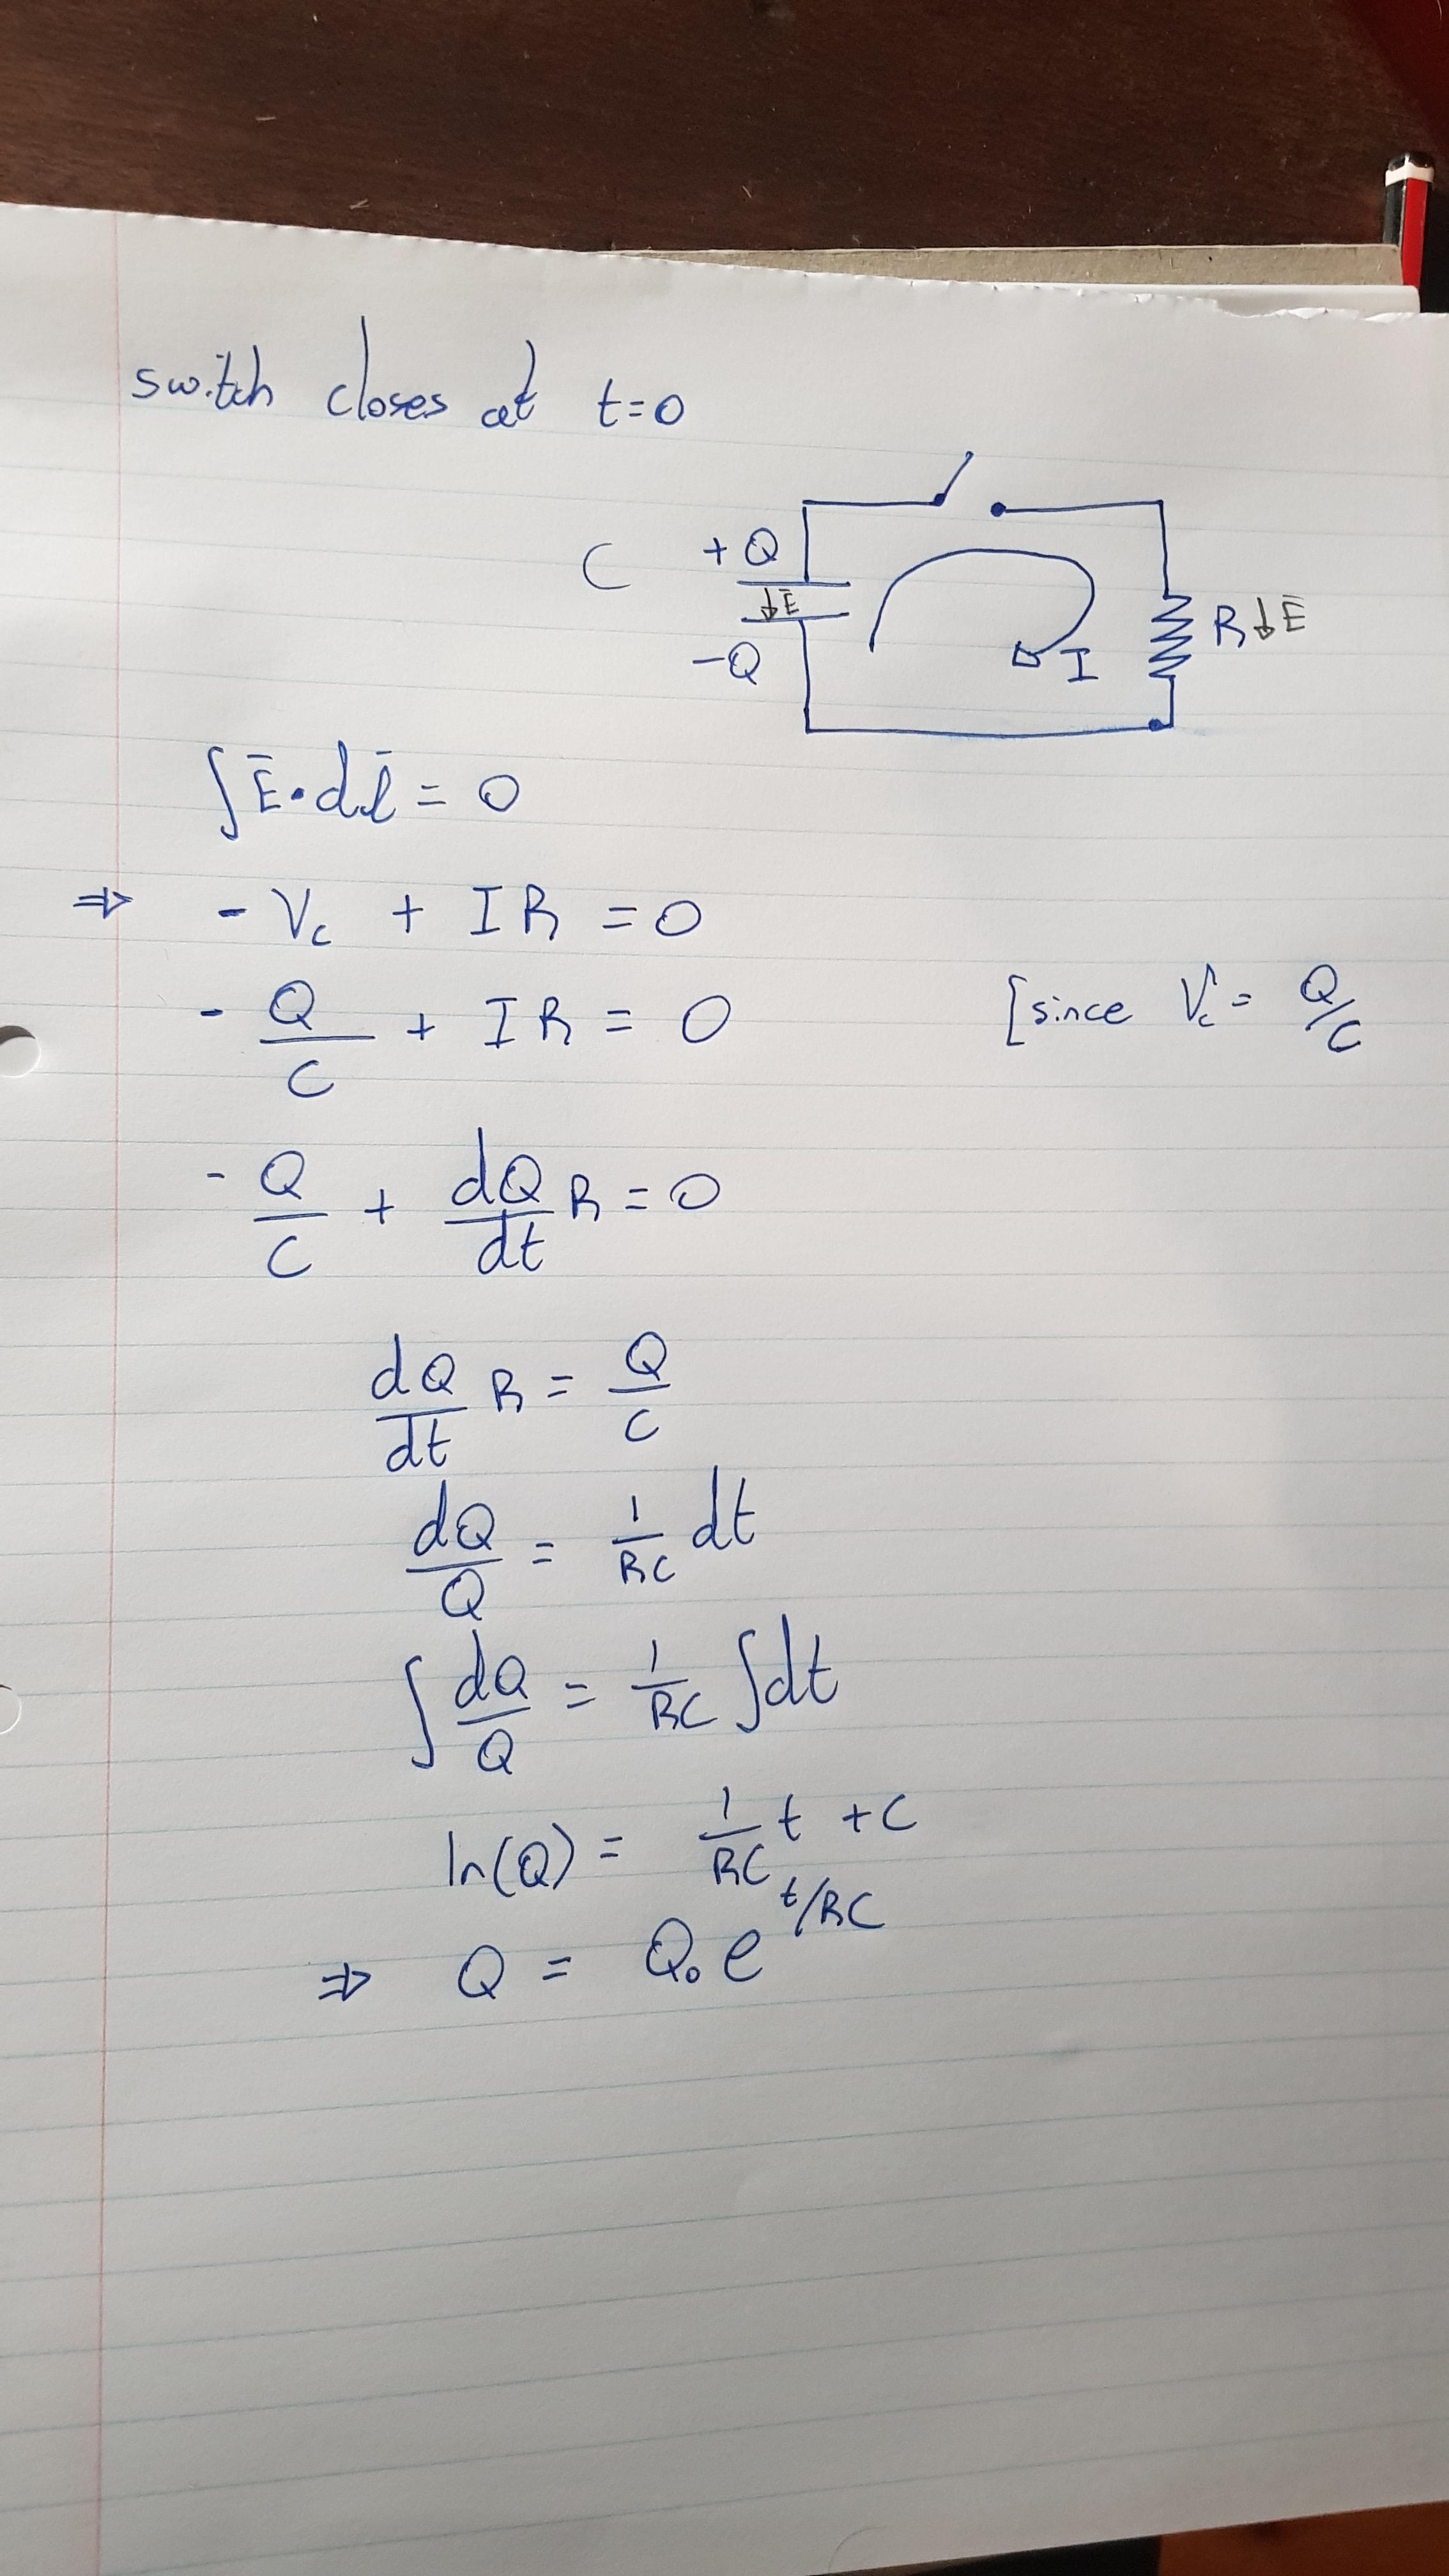 switch closes at t=0
C +Q
↓Ē
R ↓Ē
-Q
I
∫Ē·dl̄ = 0
⇒ - Vc + IR = 0
- Q/C + IR = 0 [since Vc = Q/C
- Q/C + dQ/dt R = 0
dQ/dt R = Q/C
dQ/Q = 1/RC dt
∫ dQ/Q = 1/RC ∫dt
ln(Q) = 1/RC t + C
⇒ Q = Q₀ e^t/RC